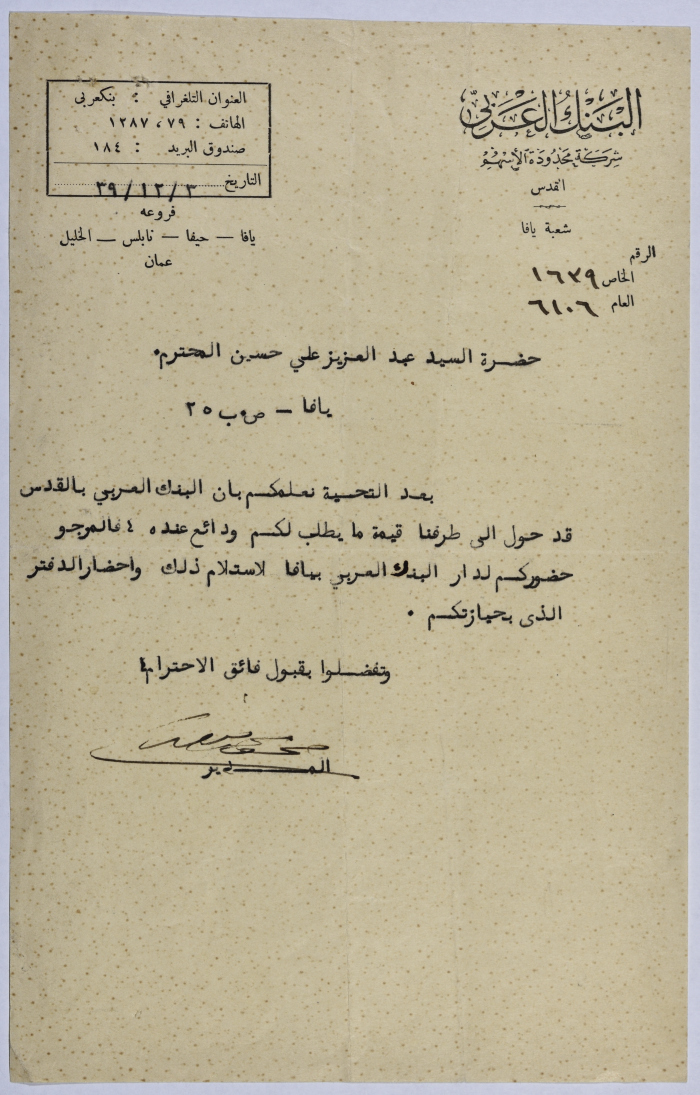 البنك العربي
شركة محدودة الأسهم
القدس
شعبة يافا
الرقم
الخاص ١٦٣٩
العام ٦١٠٦
العنوان التلغرافي : بنكعربي
الهاتف : ٧٩ ، ١٢٨٧
صندوق البريد : ١٨٤
التاريخ ٣٩/١٢/٣
فروعه
يافا — حيفا — نابلس — الخليل
عمان
حضرة السيد عبد العزيز علي حسين المحترم.
يافا — ص.ب ٢٥
بعد التحية نعلمكم بان البنك العربي بالقدس
قد حول الى طرفنا قيمة ما يطلب لكم ودائع عنده ، فالمرجو
حضوركم لدار البنك العربي بيافا لاستلام ذلك واحضار الدفتر
الذى بحيازتكم .
وتفضلوا بقبول فائق الاحترام ،
المدير